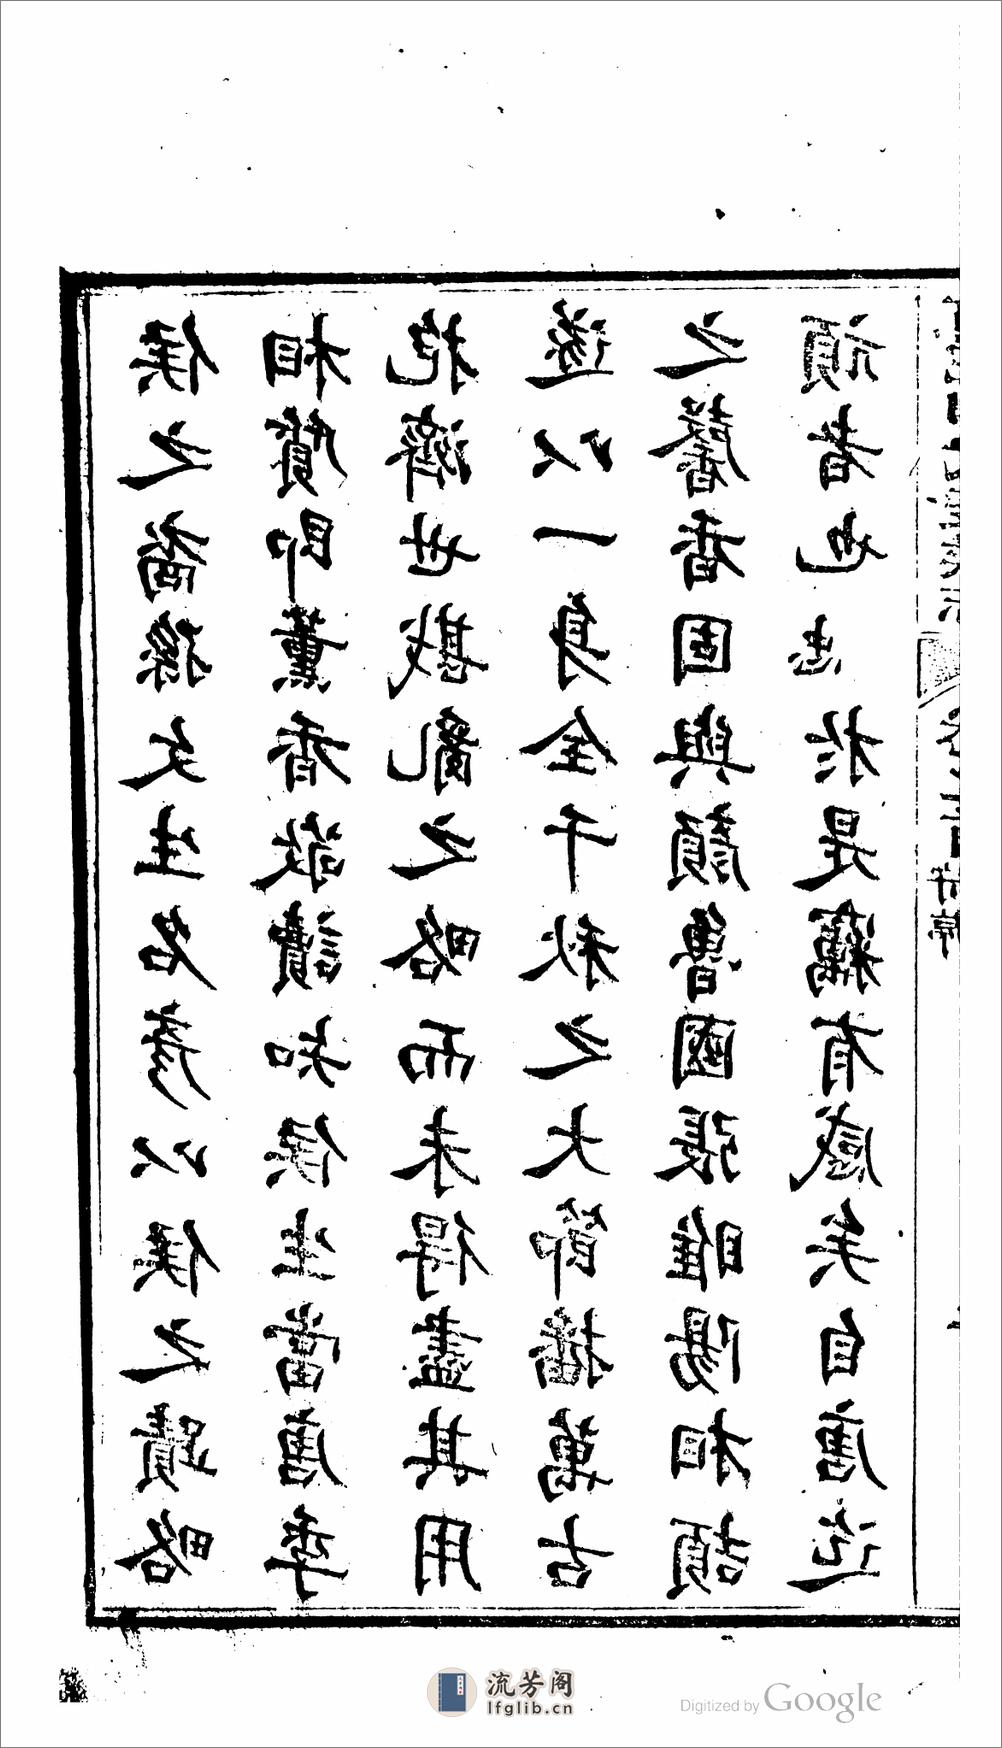 侯之裔孫文生名彥以侯之蹟略
相質即薰香敬讀知侯生當唐季
抱濟世戡亂之略而未得盡其用
遂以一身全千秋之大節播萬古
之馨香固與顏魯國張睢陽相頡
頏者也忠於是竊有感矣自唐迄
流芳阁
lfglib.cn
Digitized by Google